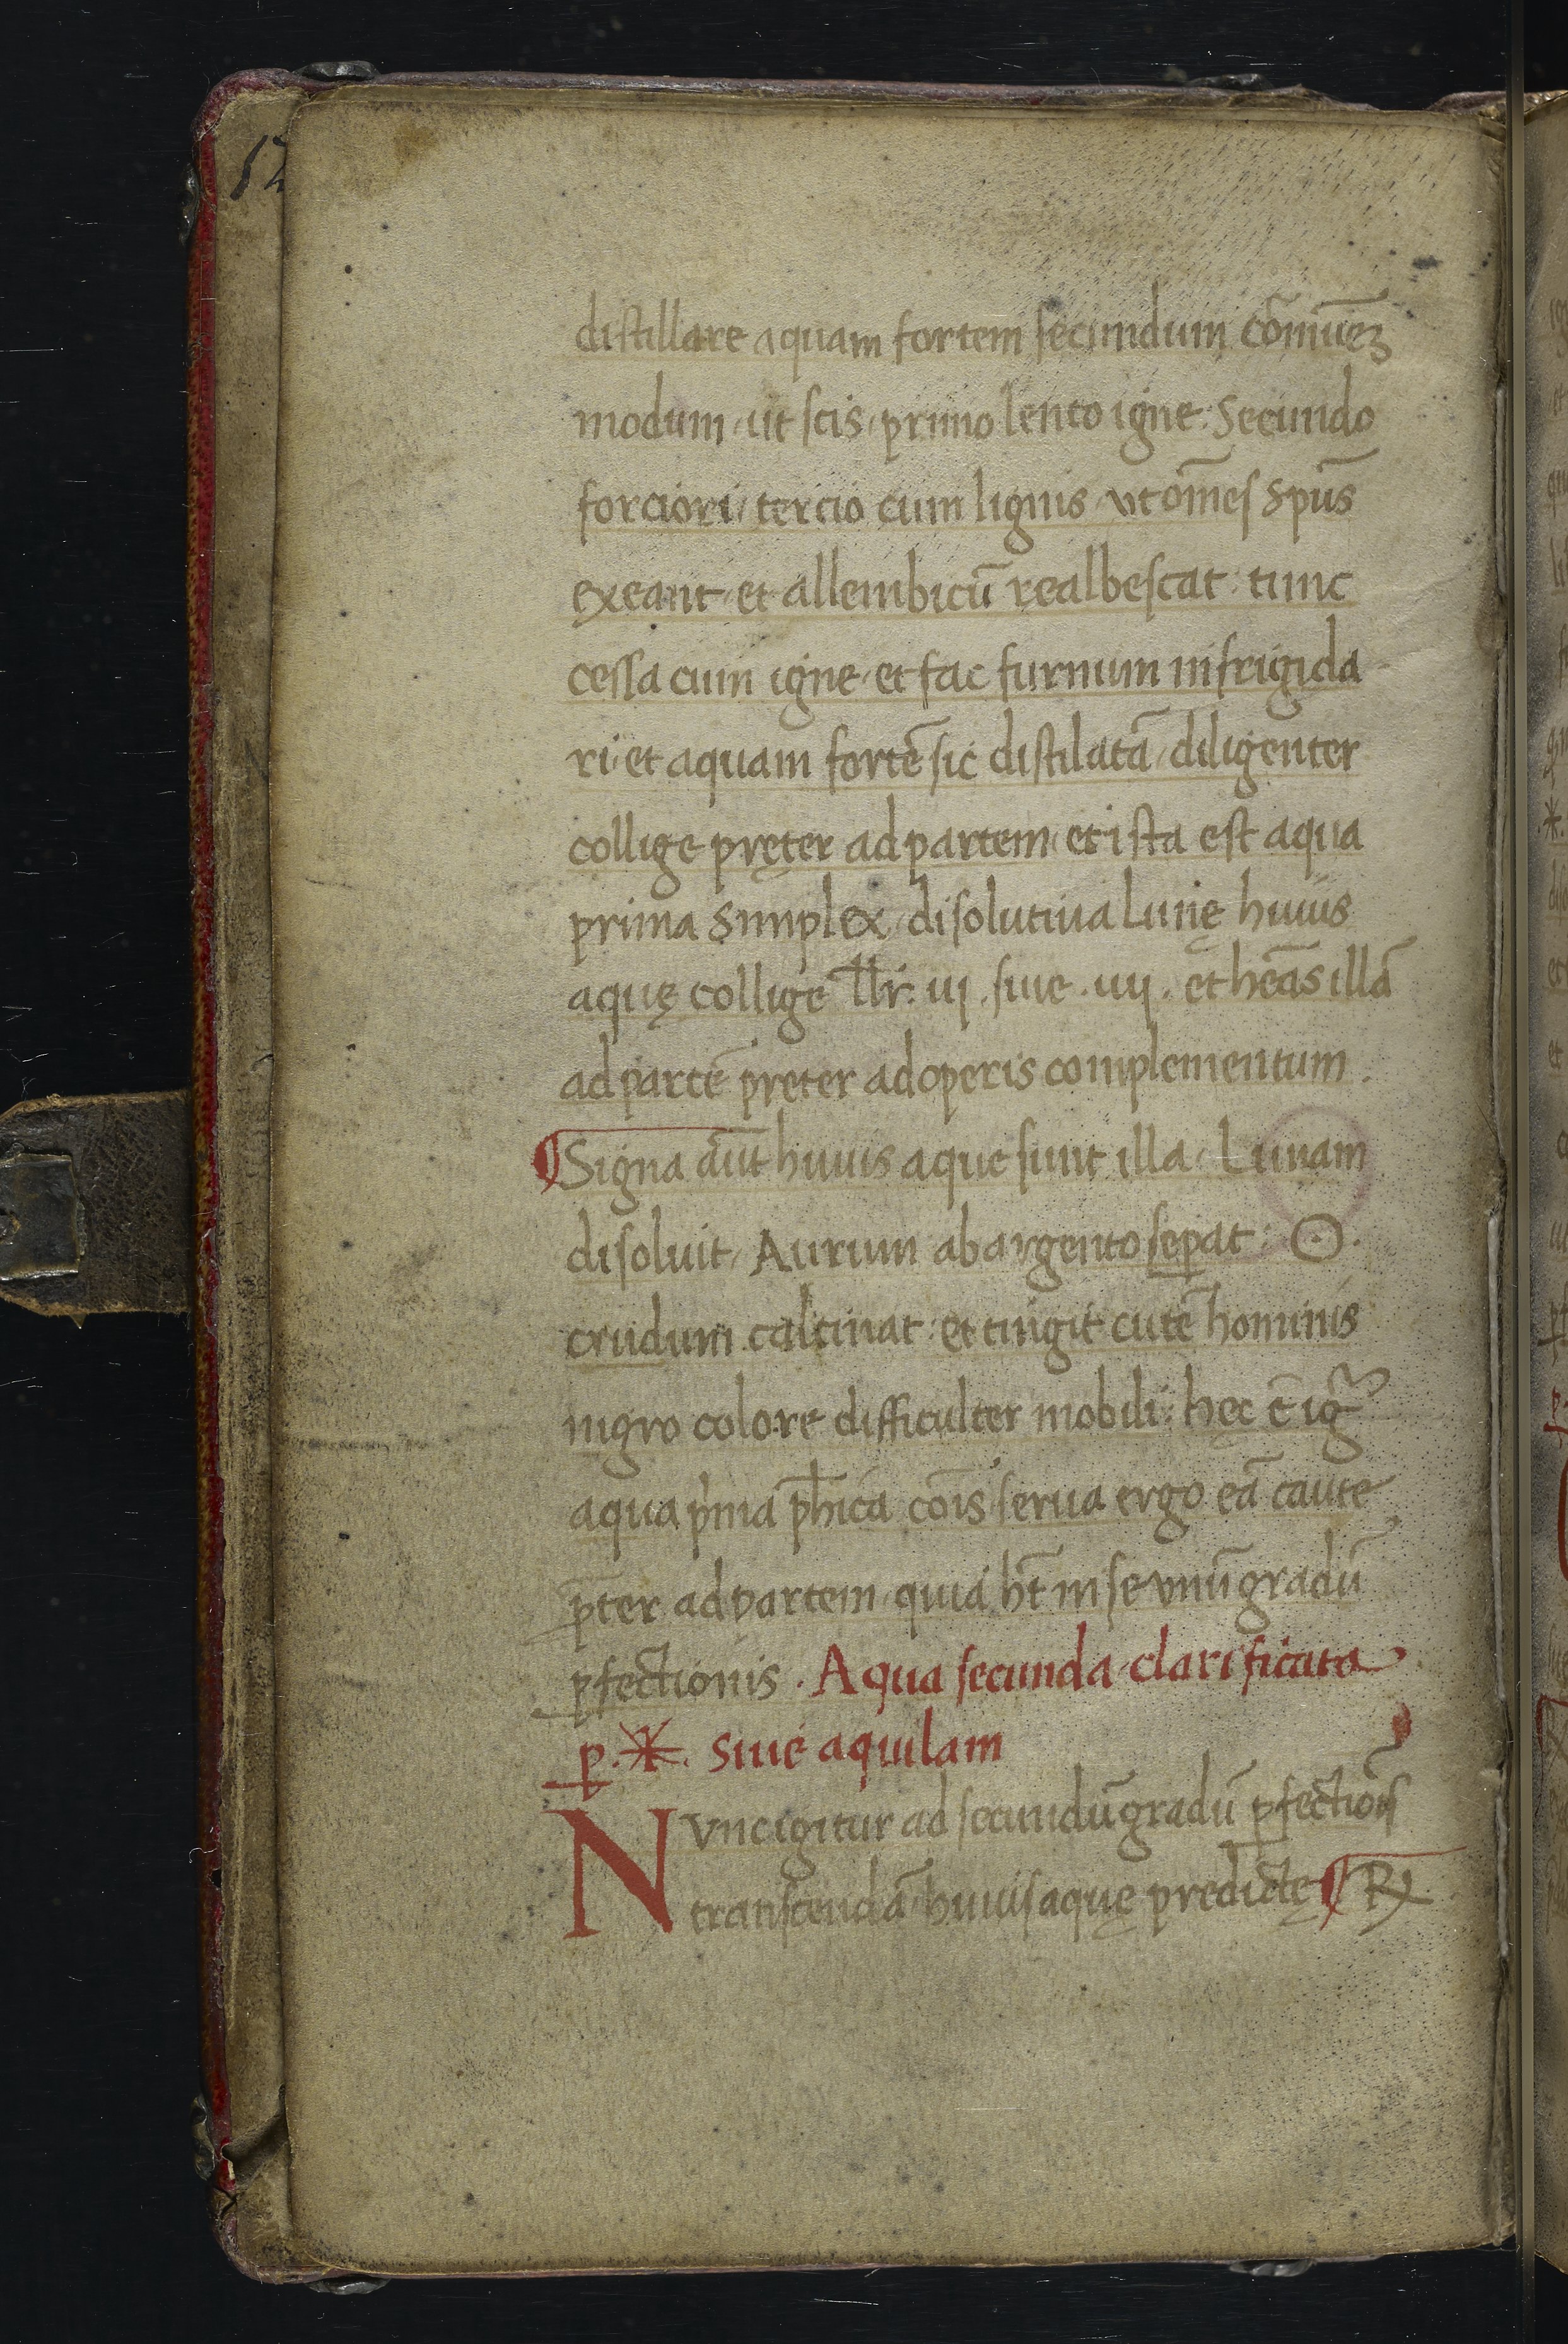 12
distillare aquam fortem secundum cōmūeꝫ
modum, ut scis, primo lento igne. Secundo
forciori, tercio cum lignis, vt om̄es Spūs
exeant, et allembicū realbescat: tunc
cessa cum igne, et fac furnum infrigida
ri, et aquam fortē sic distilatā, diligenter
collige pręter ad partem, et ista est aqua
prima Simplex, disolutiua Lunę huius
aquę collige llr. iij. siue. iiij. et hēas illā
ad partē preter ad operis complementum.
Signa aūt huius aque sunt illa, Lunam
disoluit, Aurum ab argento seꝑat: ☉.
crudum calcinat: et tingit cutē hominis
nigro colore difficulter mobili: hęc ē igr̃
aqua p̃ma ph̄ica cōis, serua ergo eā caute
p̄ter ad partem, quia h̄t in se vnū gradū
ꝑfectionis. Aqua secunda clarificata
ꝑ. ✶. siue aquilam
Nvnc igitur ad secundū gradū ꝑfectiōis
transcendā huius aquę predictę ℞